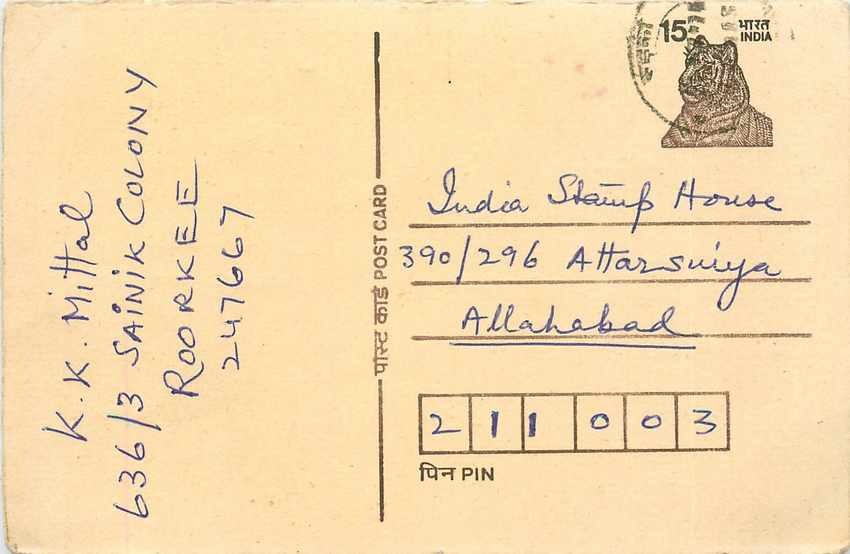 K.K. Mittal
636/3 SAiNiK COLONY
ROORKEE
247667
पोस्ट कार्ड POST CARD
15
भारत
INDIA
India Stamp House
390/296 Attarsuiya
Allahabad
211003
पिन PIN